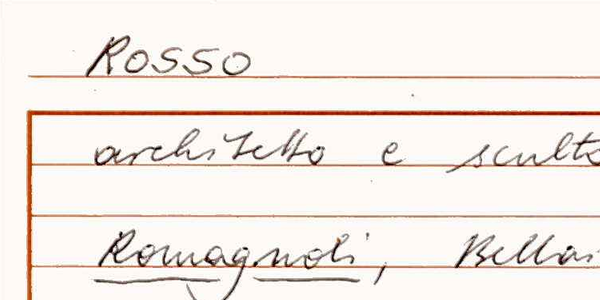 ROSSO
architetto e sculto
Romagnoli, Bellar